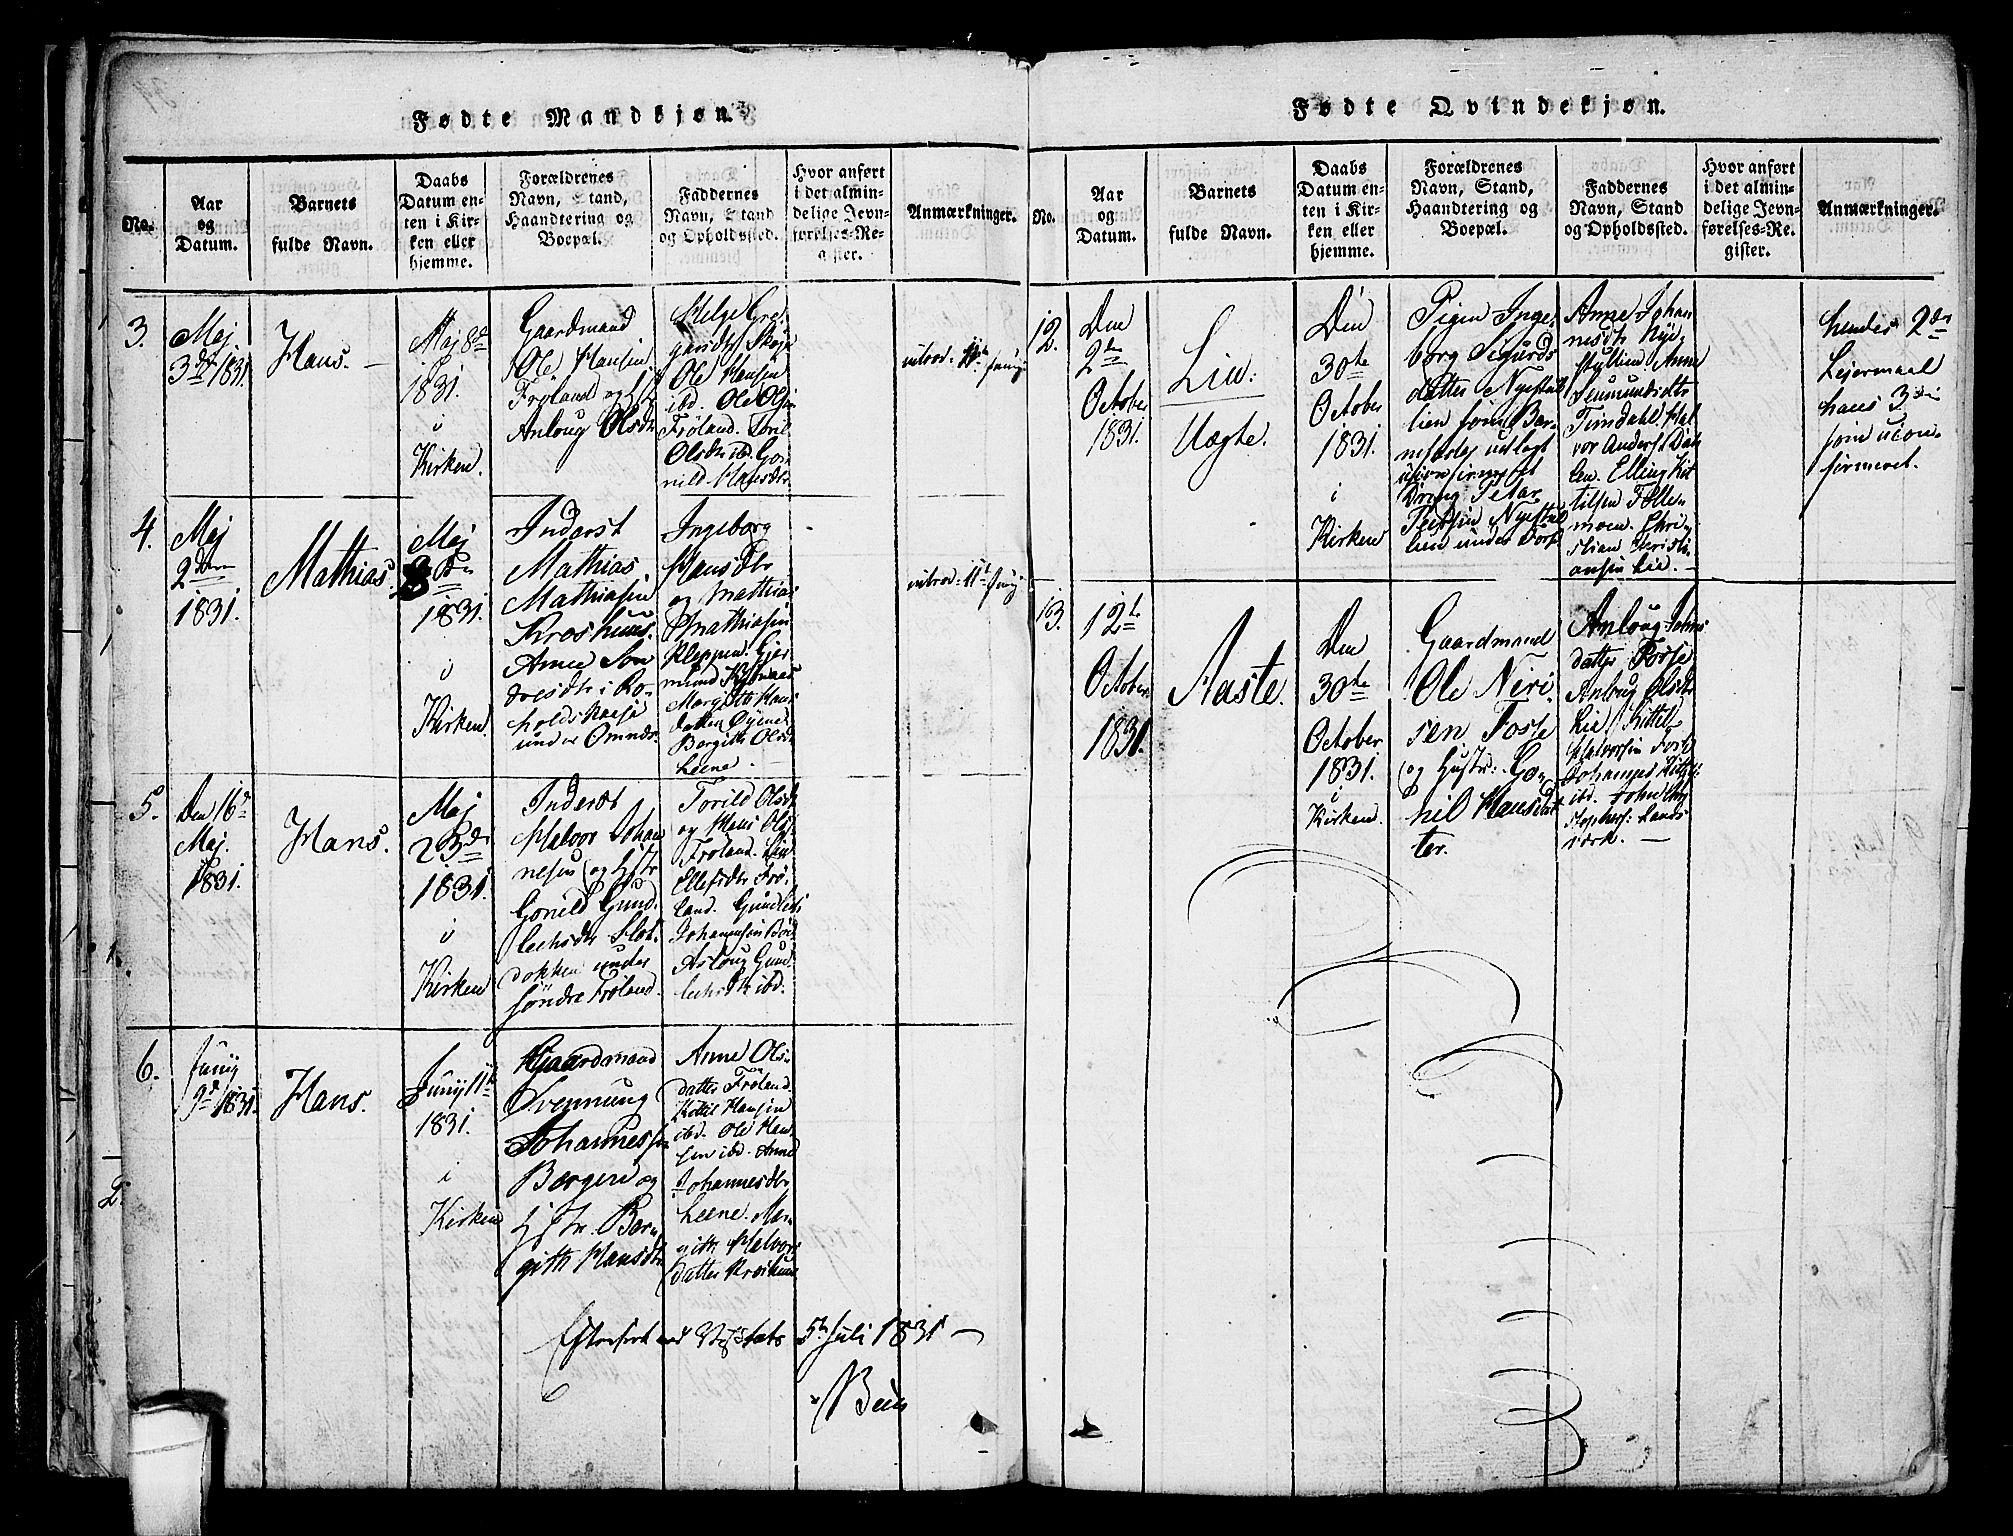 Fødte Mandkjøn.
No.
Aar
og
Datum.
Barnets
fulde Navn.
Daabs
Datum en-
ten i Kir-
ken eller
hjemme.
Forældrenes
Navn, Stand,
Haandtering og
Boepæl.
Faddernes
Navn, Stand
og Opholdssted.
Hvor anført
i det almin-
delige Jevn-
førelses-Re-
gister.
Anmærkninger.
3.
Maj
3die 1831.
Hans.
Maj 8de
1831.
i
Kirken.
Gaardmand
Ole Hansen
Frøland og
Anloug Olsdtr
Helge Gre-
Ole Hansen
ibd. Ole Ols.
Frøland. Toril
Olsdtr ibd. Go-
nild Hansdtr.
introd: 11te Junij
4.
Maj
2den
1831.
Mathias.
Maj
1831.
i
Kirken.
Inderst
Mathias
Mathiasen
Kroshuus.
Anne
under Omnes.
Ingeborg
Hansdtr
og Mathias
Mathiasen
Kleppen.
Margith Hans
datter Øyene
Bergith Olsdtr
Leene.
introd: 11te Junij
5.
Den 16de
Maj.
1831.
Hans.
Maj
23de
1831.
i
Kirken
Inderst
Halvor Johan
nesen og Hstr
Gonild Gund.
lechsdtr Slot.
dokken under
søndre Frøland.
Torild Olsdtr
og Hans Ols.
Frøland. Liv
Ellefsdtr Frø-
land. Gundlech
Johannesen
Asloug Gund
lechsdtr ibd.
6.
Junij
9de 1831.
Hans.
Junij 11te
1831.
i
Kirken
Gaardmand
Svennung
Johannessen
Bergene og
Hstr. Ber-
gith Hansdtr
Anne Ols-
datter Frøland.
Kittil Hansen
ibd. Ole Han-
sen ibd. Anne
Johannesdtr
Leene. Mar-
gith Halvors
datter Kroshuus
5te Juli 1831
Fødte Qvindekjøn.
No.
Aar
og
Datum.
Barnets
fulde Navn.
Daabs
Datum en-
ten i Kir-
ken eller
hjemme.
Forældrenes
Navn, Stand,
Haandtering og
Boepæl.
Faddernes
Navn, Stand
og Opholdssted.
Hvor anført
i det almin-
delige Jevn-
førelses-Re-
gister.
Anmærkninger.
12.
Den
2de
October
1831.
Liv:
Uægte.
Den
30te
October
1831.
i
Kirken
Pigen Inge-
borg Sigurds
datter Nyestul
lien som Bar-
nefader udlagt
Dreng Peter
Persen Nyestul
lien under
Anne Johan
nesdtr Nye-
stullien Anne
Semundsdtr
Timdahl. Hal
vor Anders.
Elling Kit
tilsen
moen. Chri-
stian Christi-
ansen Lie.
hendes 2den
Lejermaal
hans 3die
som ucon-
firmeret.
13.
12te
October
1831.
Aaste.
Den
30te
October
1831.
i
Kirken.
Gaardmand
Ole Neri-
sen Fosse
og Hustr: Go-
nil Hansdat
ter.
Anloug
datter Fosse
Anloug Olsdtr
Lie Kittel
Halvorsen
Johannes
ibd. John